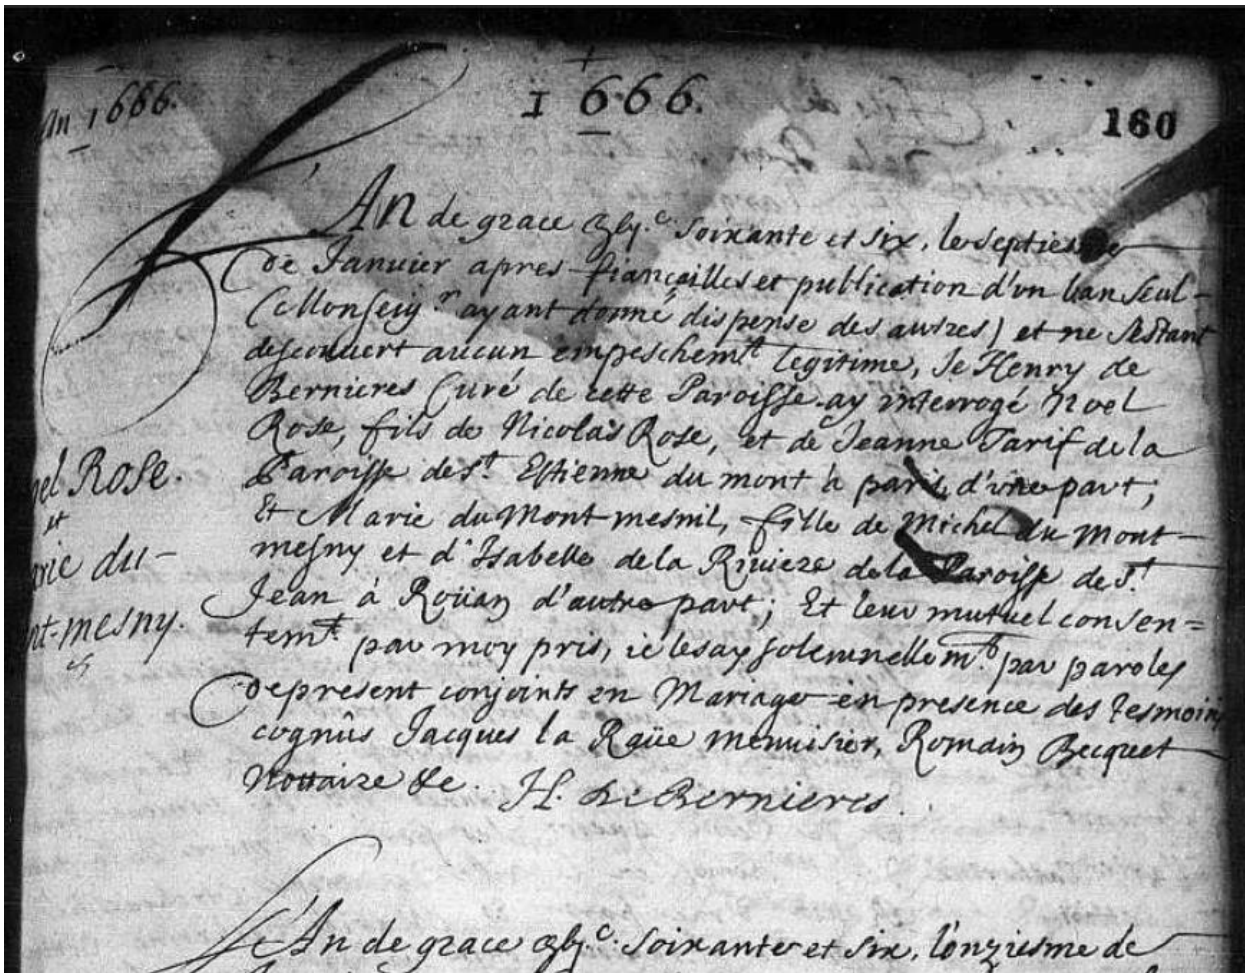 An 1666.
1666.
160
L'An de grace gbyc. soixante et six, le septiesme
de Januier apres fiançailles et publication d'vn ban seul
(Monseigr ayant donné dispense des autres) et ne s'estant
descouuert aucun empeschemt. legitime, Je Henry de
Bernieres Curé de cette Paroisse ay interrogé Noel
Rose, fils de Nicolas Rose, et de Jeanne Tarif de la
Paroisse de st. Estienne du mont à paris d'vne part;
Et Marie du Mont-mesnil, fille de Michel du Mont-
mesny et d'Isabelle de la Riuiere de la Paroisse de st.
Jean à Roüan d'autre part; Et leur mutuel consen=
temt. par moy pris, ie les ay solemnellemt. par paroles
de present conjoints en Mariage en presence des tesmoins
cognûs Jacques la Raüe menuisier, Romain Becquet
Nottaire &c. H. de Bernieres.
oel Rose.
et
arie du-
nt-mesny.
L'An de grace gbyc. soixante et six, l'onziesme de